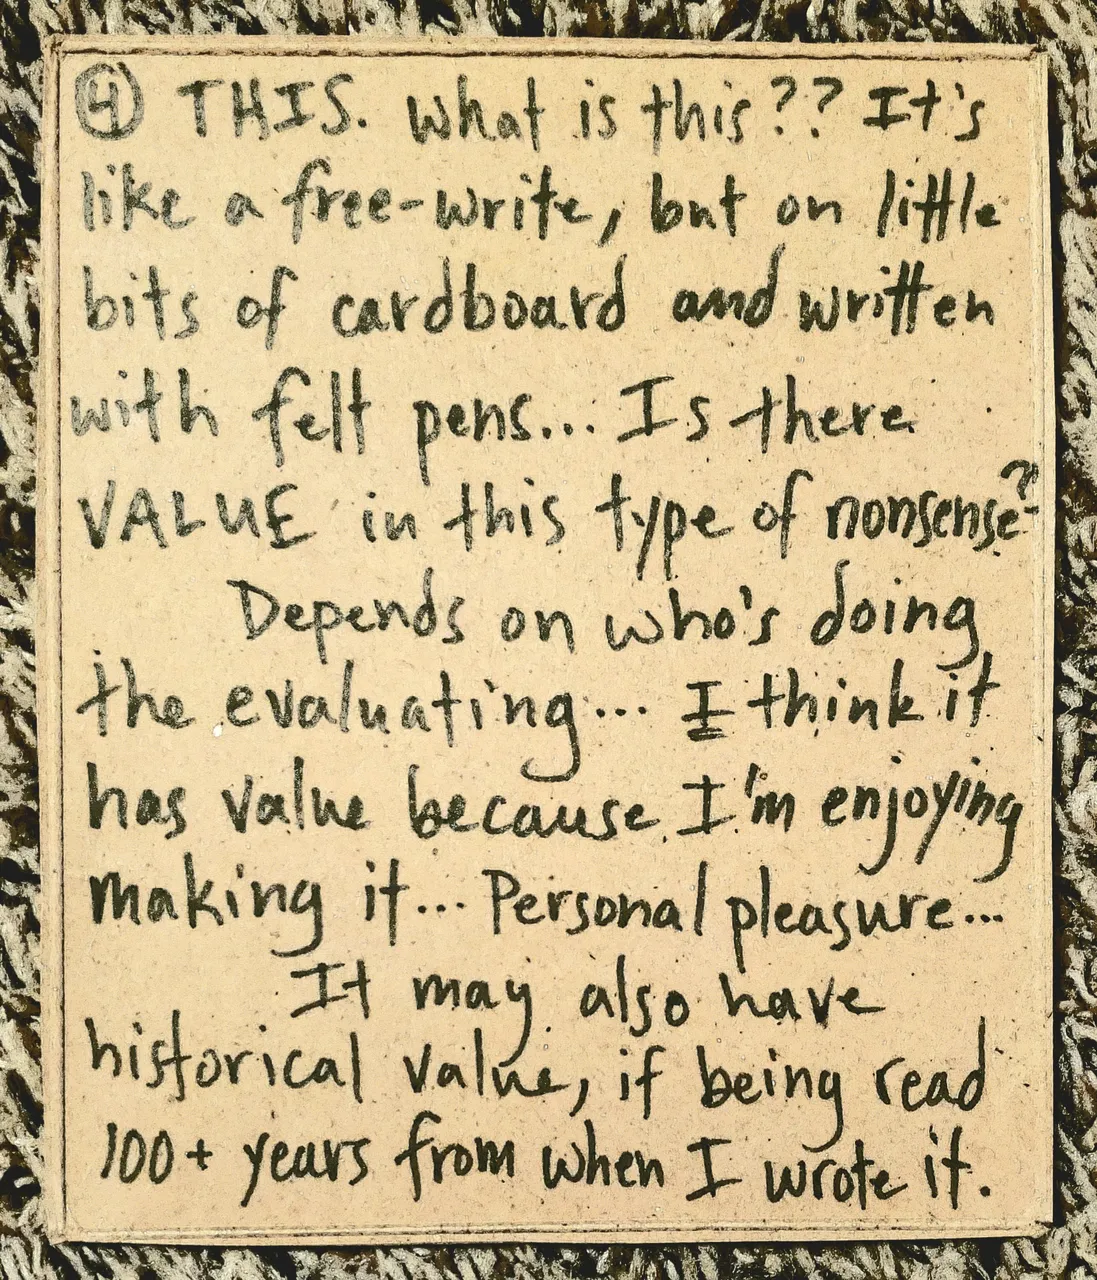 ④ THIS. What is this?? It's
like a free-write, but on little
bits of cardboard and written
with felt pens... Is there
VALUE in this type of nonsense?
Depends on who's doing
the evaluating... I think it
has value because I'm enjoying
making it... Personal pleasure...
It may also have
historical value, if being read
100+ years from when I wrote it.